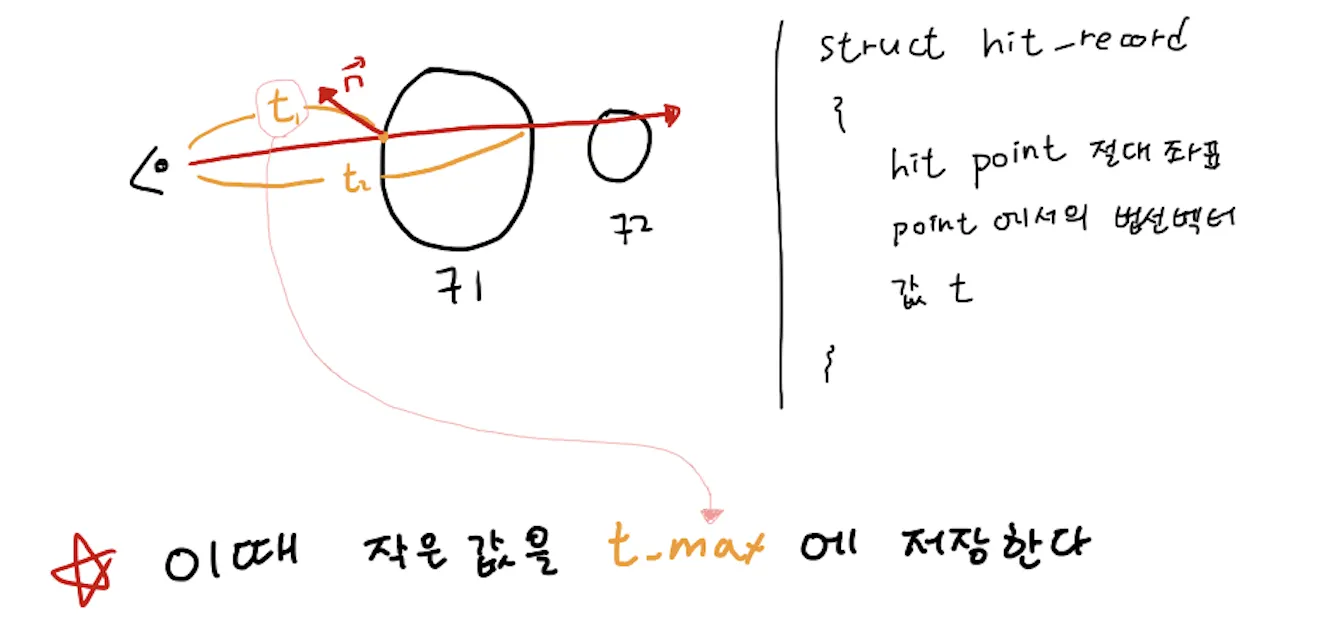 t₁
n⃗
t₂
구1
구2
struct hit_record
{
hit point 절대좌표
point 에서의 법선벡터
값 t
}
☆ 이때 작은값을 t_max 에 저장한다